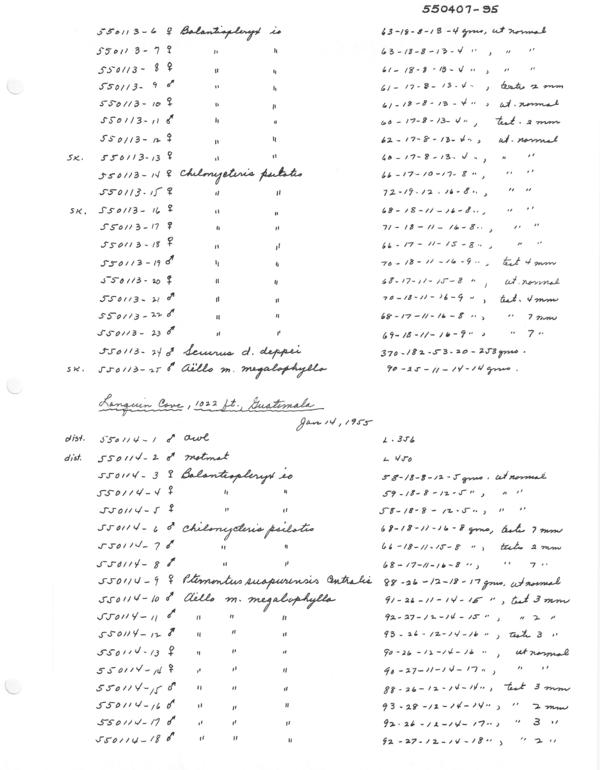 550407-95
550113-6 ♀ Balantiopteryx io 63-18-8-13-4 gms, ut normal
550113-7 ♀ " " 63-18-8-13-4 ", " "
550113-8 ♀ " " 61-18-8-13-4 ", " "
550113-9 ♂ " " 61-17-8-13-4 ", testes 2 mm
550113-10 ♀ " " 61-18-8-13-4 ", ut. normal
550113-11 ♂ " " 60-17-8-13-4 ", test. 2 mm
550113-12 ♀ " " 62-17-8-13-4 ", ut. normal
SK. 550113-13 ♀ " " 60-17-8-13-4 ", " "
550113-14 ♀ Chilonycteris psilotis 66-17-10-17-8 ", " "
550113-15 ♀ " " 72-19-12-16-8 ", " "
SK. 550113-16 ♀ " " 68-18-11-16-8 ", " "
550113-17 ♀ " " 71-18-11-16-8 ", " "
550113-18 ♀ " " 66-17-11-15-8 ", " "
550113-19 ♂ " " 70-18-11-16-9 ", test 4 mm
550113-20 ♀ " " 68-17-11-15-8 ", ut. normal
550113-21 ♂ " " 70-18-11-16-9 ", test. 4 mm
550113-22 ♂ " " 68-17-11-16-8 ", " 7 mm
550113-23 ♂ " " 69-18-11-16-9 ", " 7 "
550113-24 ♂ Sciurus d. deppei 370-182-53-20-253 gms.
SK. 550113-25 ♂ Aëllo m. megalophylla 90-25-11-14-14 gms.
Lanquin Cave, 1022 ft., Guatemala
Jan 14, 1955
dist. 550114-1 ♂ owl L. 356
dist. 550114-2 ♂ motmot L 450
550114-3 ♀ Balantiopteryx io 58-18-8-12-5 gms. ut normal
550114-4 ♀ " " 59-18-8-12-5 ", " "
550114-5 ♀ " " 58-18-8-12-5 ", " "
550114-6 ♂ Chilonycteris psilotis 68-18-11-16-8 gms, testes 7 mm
550114-7 ♂ " " 66-18-11-15-8 ", testes 2 mm
550114-8 ♂ " " 68-17-11-16-8 ", " 7 "
550114-9 ♀ Pteronotus suapurensis centralis 88-26-12-18-17 gms, ut normal
550114-10 ♂ Aëllo m. megalophylla 91-26-11-14-15 ", test 3 mm
550114-11 ♂ " " " 92-27-12-14-15 ", " 2 "
550114-12 ♂ " " " 93-26-12-14-16 ", testes 3 "
550114-13 ♀ " " " 90-26-12-14-16 ", ut normal
550114-14 ♀ " " " 90-27-11-14-17 ", " "
550114-15 ♂ " " " 88-26-12-14-14 ", test 3 mm
550114-16 ♂ " " " 93-28-12-14-14 ", " 2 mm
550114-17 ♂ " " " 92-26-12-14-17 ", " 3 "
550114-18 ♂ " " " 92-27-12-14-18 ", " 2 "